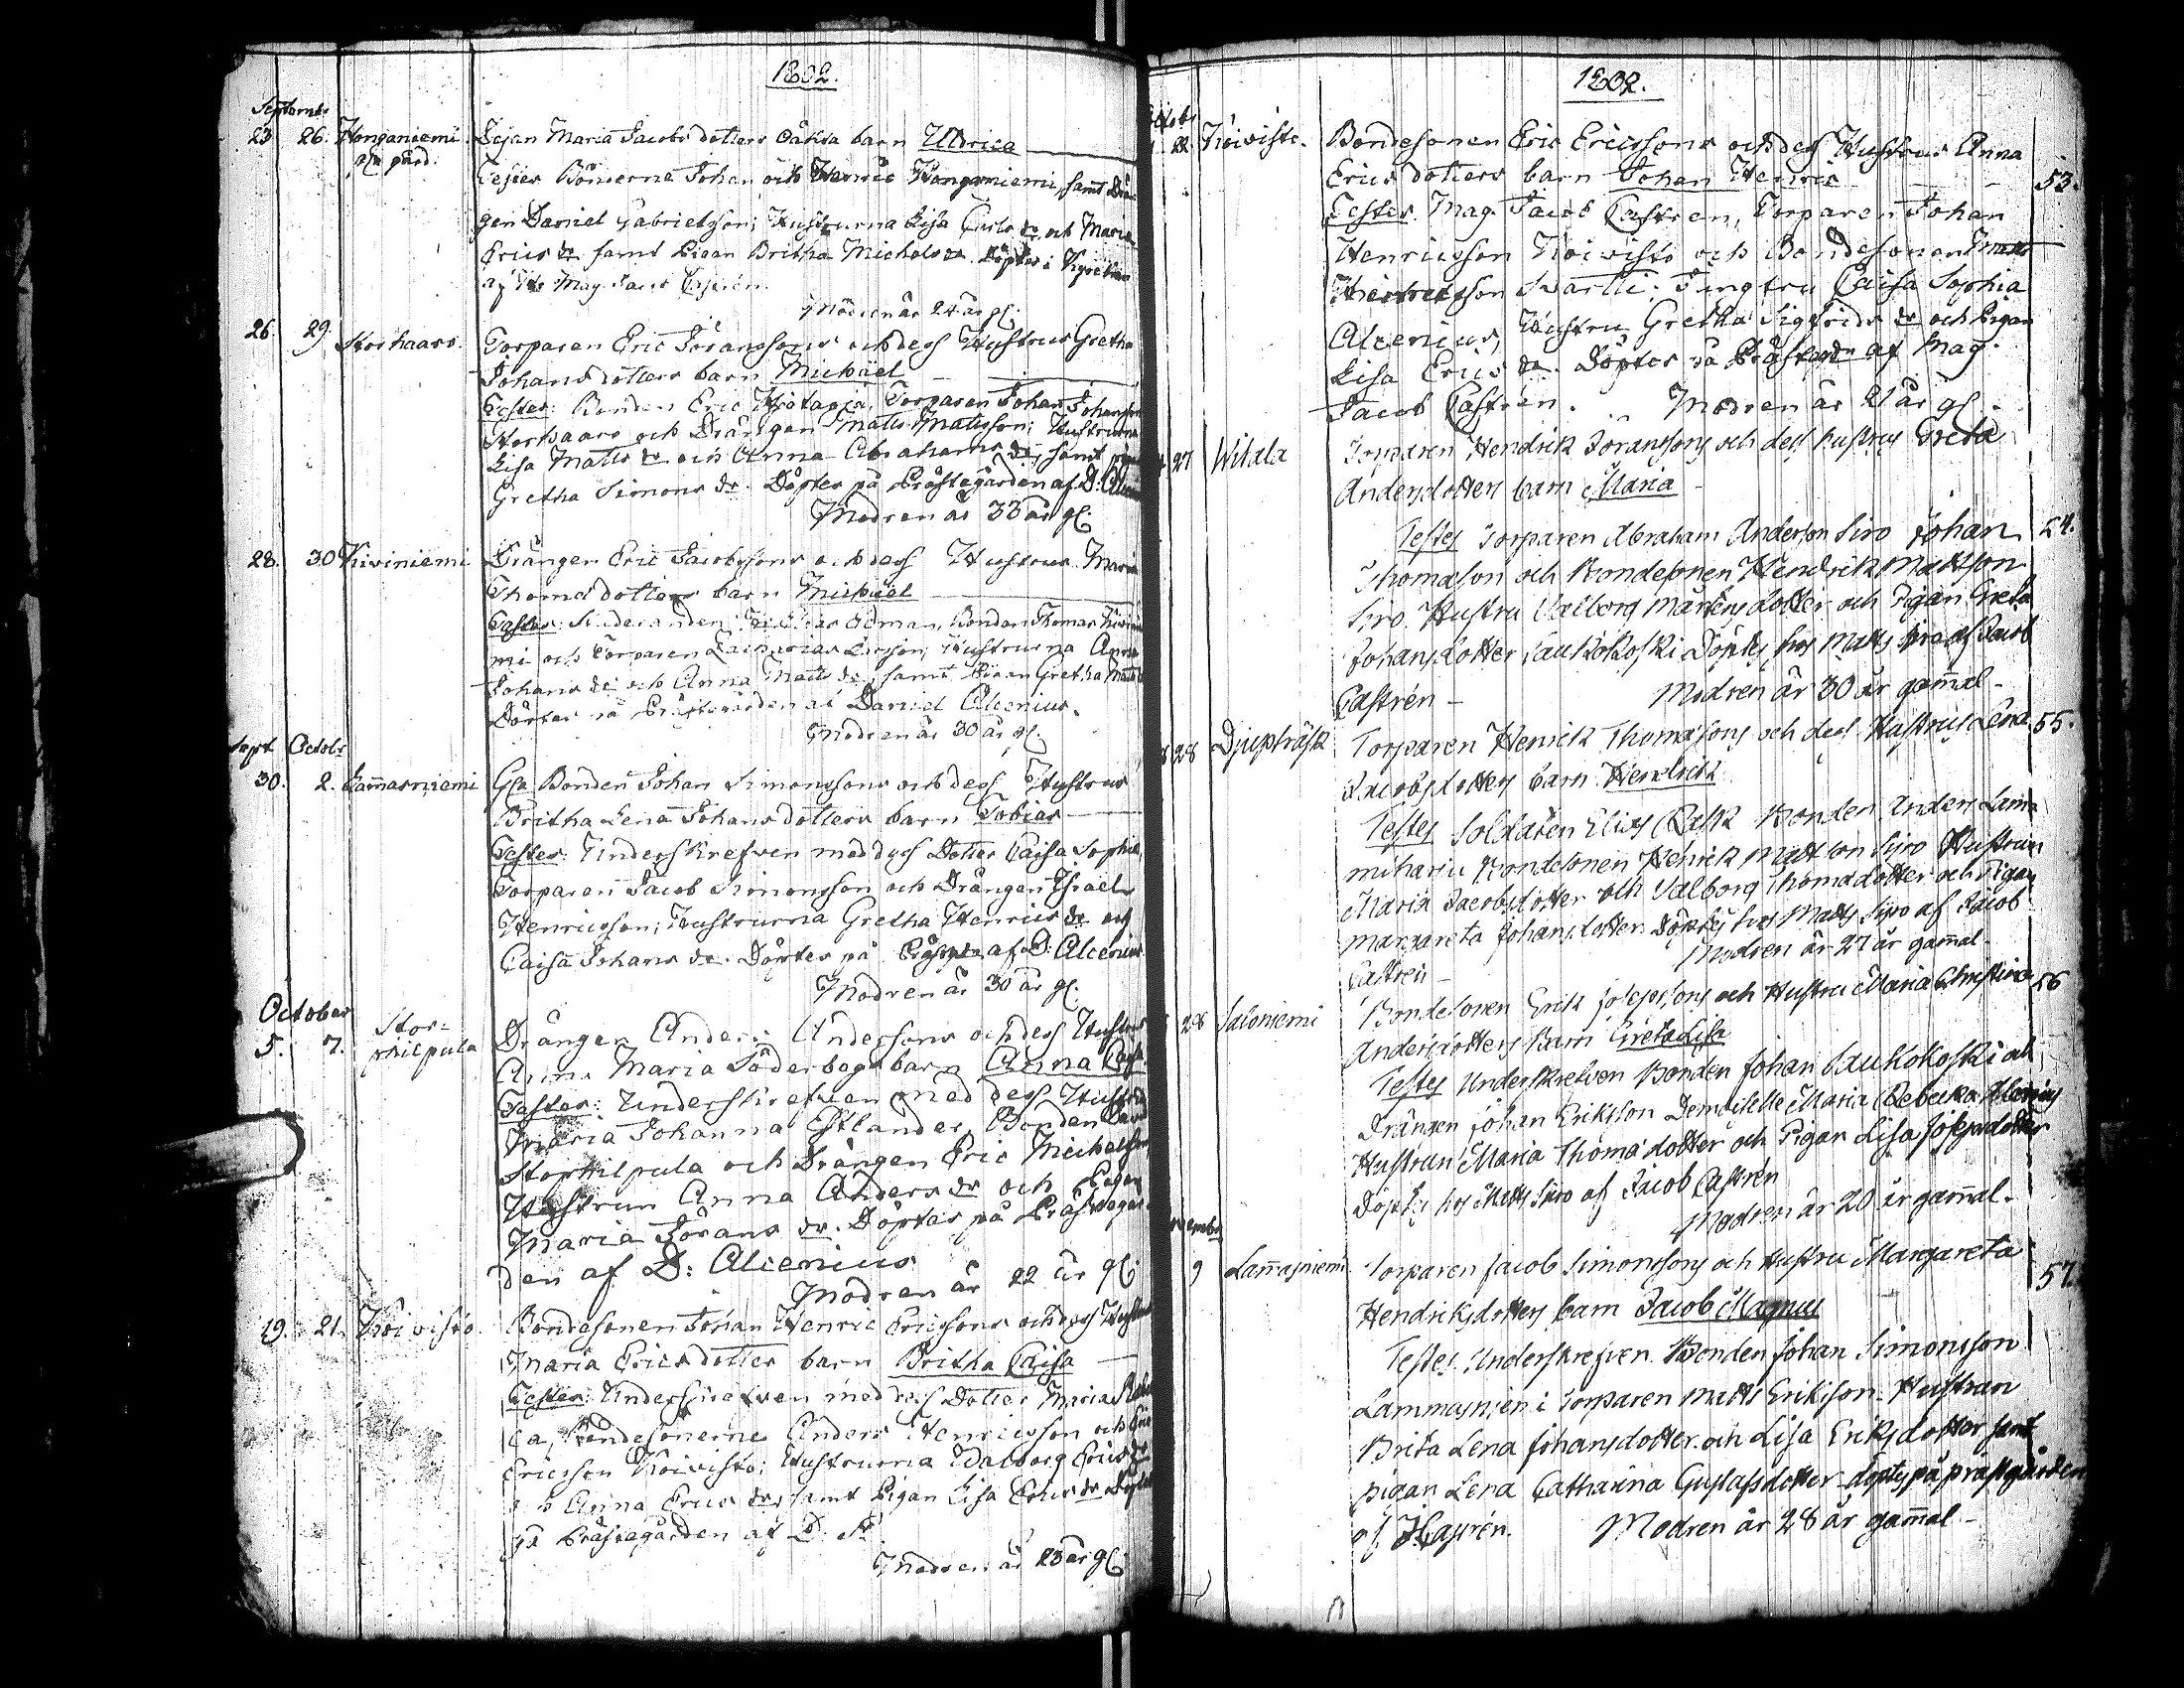 1802.
Septembr
23 26. Honganiemi Pigan Maria Jacobs dotters oäkta barn Uldrica
Testes Bönderna Johan och Henric Honganiemi, samt Drän
gen Daniel Gabrielsson; Hustrurna Lisa Carls dr och Maria
Erics dr samt Pigan Britha Michels dr. Döptes i Kyrckan
af Mag. Jacob Castrén.
Modren är 24 år gl.
26. 29. Storhaaro. Torparen Eric Jöranssons och dess Hustrus Gretha
Johans dotters barn Michaël
Testes: Bonden Eric Torparen Johan Johansson
Storhaaro och Drängen Matts Mattsson; Hustrurna
Lisa Matts dr och Anna Abrahams dr, samt
Gretha Simons dr. Döptes på Prästegården af D: Alcenius
Modren är 33 år gl.
28. 30 Kiviniemi Drängen Eric Jacobssons och dess Hustrus Maria
Thomæ dotters barn Michaël
Testes: Studeranden Elias Ödman, Bonden Thomas Kivinie
mi och Torparen Zacharias Larsson; Hustrurna Anna
Johans dr och Anna Matts dr, samt Pigan Gretha Matts
Döptes på Prästegården af Daniel Alcenius.
Modren är 30 år gl.
Sept. Octobr
30. 2. Lam̄asniemi Gla Bonden Johan Simonssons och dess Hustrus
Britha Lena Johans dotters barn Tobias
Testes: Underskrefven med dess Dotter Caisa Sophia,
Torparen Jacob Simonsson och Drängen Israel
Henricsson; Hustrurna Gretha Henrics dr och
Caisa Johans dr. Döptes på af D: Alcenius
Modren är 30 år gl.
October
5. 7. Stor=
philpula Drängen Anders Anderssons och dess Hustrus
Anna Maria Söderbogs barn Anna Caisa
Testes: Underskrefven med dess Hustru
Maria Johanna Estlander, Bonden
Storkilpula och Drängen Eric Michelsson
Hustrun Anna Anders dr och Pigan
Maria Jörans dr. Döptes på Prästegår
den af D: Alcenius
Modren är 22 år gl.
19. 21. Koivisto. Bondesonen Johan Henric Ericssons och dess Hustrus
Maria Erics dotters barn Britha Caisa
Testes: Underskrefven med dess Dotter Maria Rebec
ca, Bondesönerne Anders Henricsson och Eric
Ericsson Koivisto; Hustrurna Walborg Erics dr
och Anna Erics dr, samt Pigan Lisa Erics dr Döptes
på Prästegården af D:
Modren är 23 år gl.
1802.
Octobr
22. Koivisto. Bondesonen Eric Ericssons och dess Hustrus Anna
Erics dotters barn Johan Henric 53.
Testes. Mag. Jacob Castrén, Torparen Johan
Henricsson Koivisto och Bondesonen Matts
Henricsson Svartti. Jungfru Caisa Sophia
Alcenius, Hustru Gretha Sigfrids dr och Pigan
Lisa Erics dr. Döptes på Prästegdn af Mag.
Jacob Castrén. Modren är 21 år gl.
27 Witala Torparen Hendrick Joranssons och dess hustrus Greta
Andersdotters barn Maria
Testes Torparen Abraham Anderson Siro Johan 54.
Thomason och Bondesonen Hendrick Mattson
Siro. Hustru Valborg Mårtensdotter och Pigan Greta
Johansdotter Saukokoski Döptes hos Matts Siro af Jacob
Castrén – Modren är 30 år gam̄al –
28 Djupträsk Torparen Henrick Thomasons och dess Hustrus Lena 55.
Jacobsdotters barn Hendrick
Testes Soldaten Elias Rask Bonden Anders Lam̄a
miharju Bondesonen Henrick Mattson Siro Hustrun
Maria Jacobsdotter och Valborg Thomadotter och Pigan
Margareta Johansdotter Döptes hos Matts Siro af Jacob
Castrén – Modren är 27 år gam̄al –
28 Saloniemi Bondesonen Erik Josepssons och Hustru Maria Christina 56
Andersdotters barn Greta Lisa
Testes Underskrefven Bonden Johan Saukokoski och
Drängen Johan Erikson Demoiselle Maria Rebecka Alcenius
Hustrun Maria Thoma dotter och Pigan Lisa Josepsdotter
Döptes hos Matts Siro af Jacob Castrén
Modren är 20 år gam̄al.
Novembr
9 Lam̄asniemi Torparen Jacob Simonssons och Hustru Margareta 57.
Hendricksdotters barn Jacob Magnus
Testes. Underskrefven Bonden Johan Simonsson
Lammasniemi Torparen Matts Erikson Hustrun
Brita Lena Johansdotter och Lisa Eriksdotter samt
pigan Lena Catharina Gustafsdotter – döptes på prästgården
af J. Castrén. Modren är 28 år gam̄al –